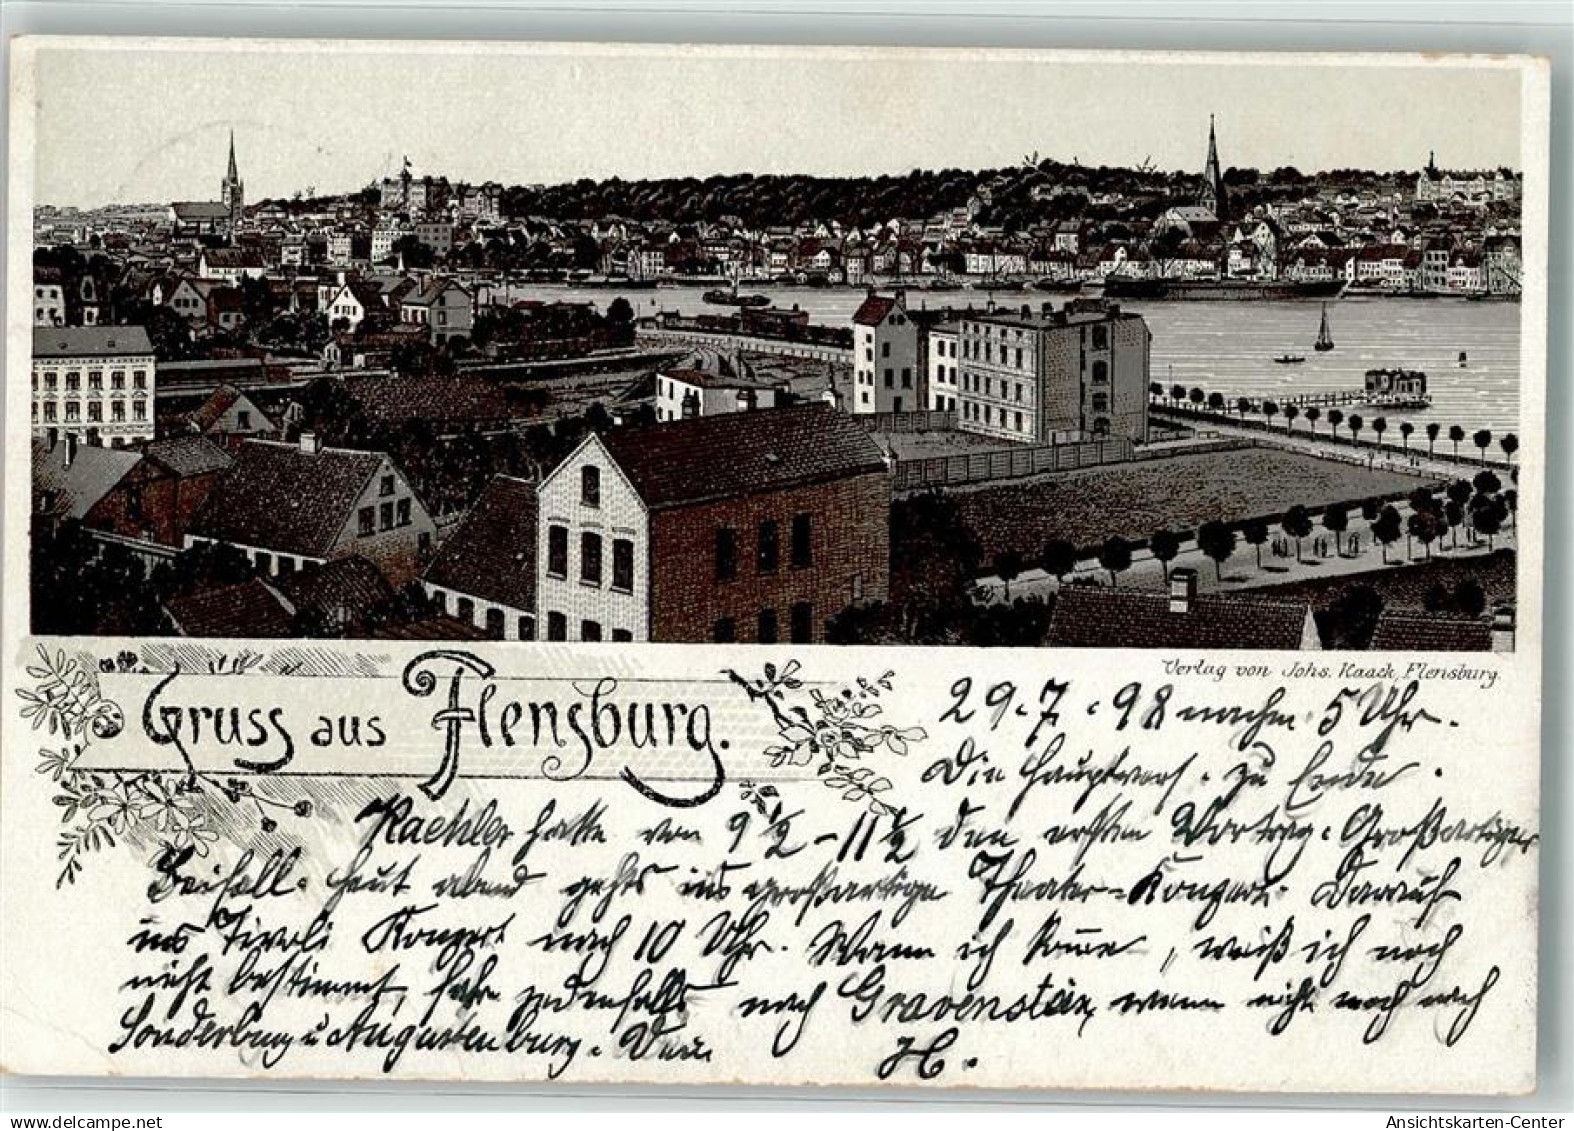 Verlag von Johs. Kaack, Flensburg.
Gruss aus Flensburg.
29.7.98 nachm. 5 Uhr.
Die Hauptvers. zu Ende.
Kaehler hatte von 9 1/2 – 11 1/2 den ersten Vortrag. Großartiger
Beifall. Heut abend gehts ins großartige Theater-Konzert. Darauf
ins Tivoli Konzert nach 10 Uhr. Wann ich komme, weiß ich noch
nicht bestimmt, fahre jedenfalls nach Gravenstein, wenn nicht noch nach
Sonderburg u Augustenburg. Dein
H.
delcampe.net
Ansichtskarten-Center